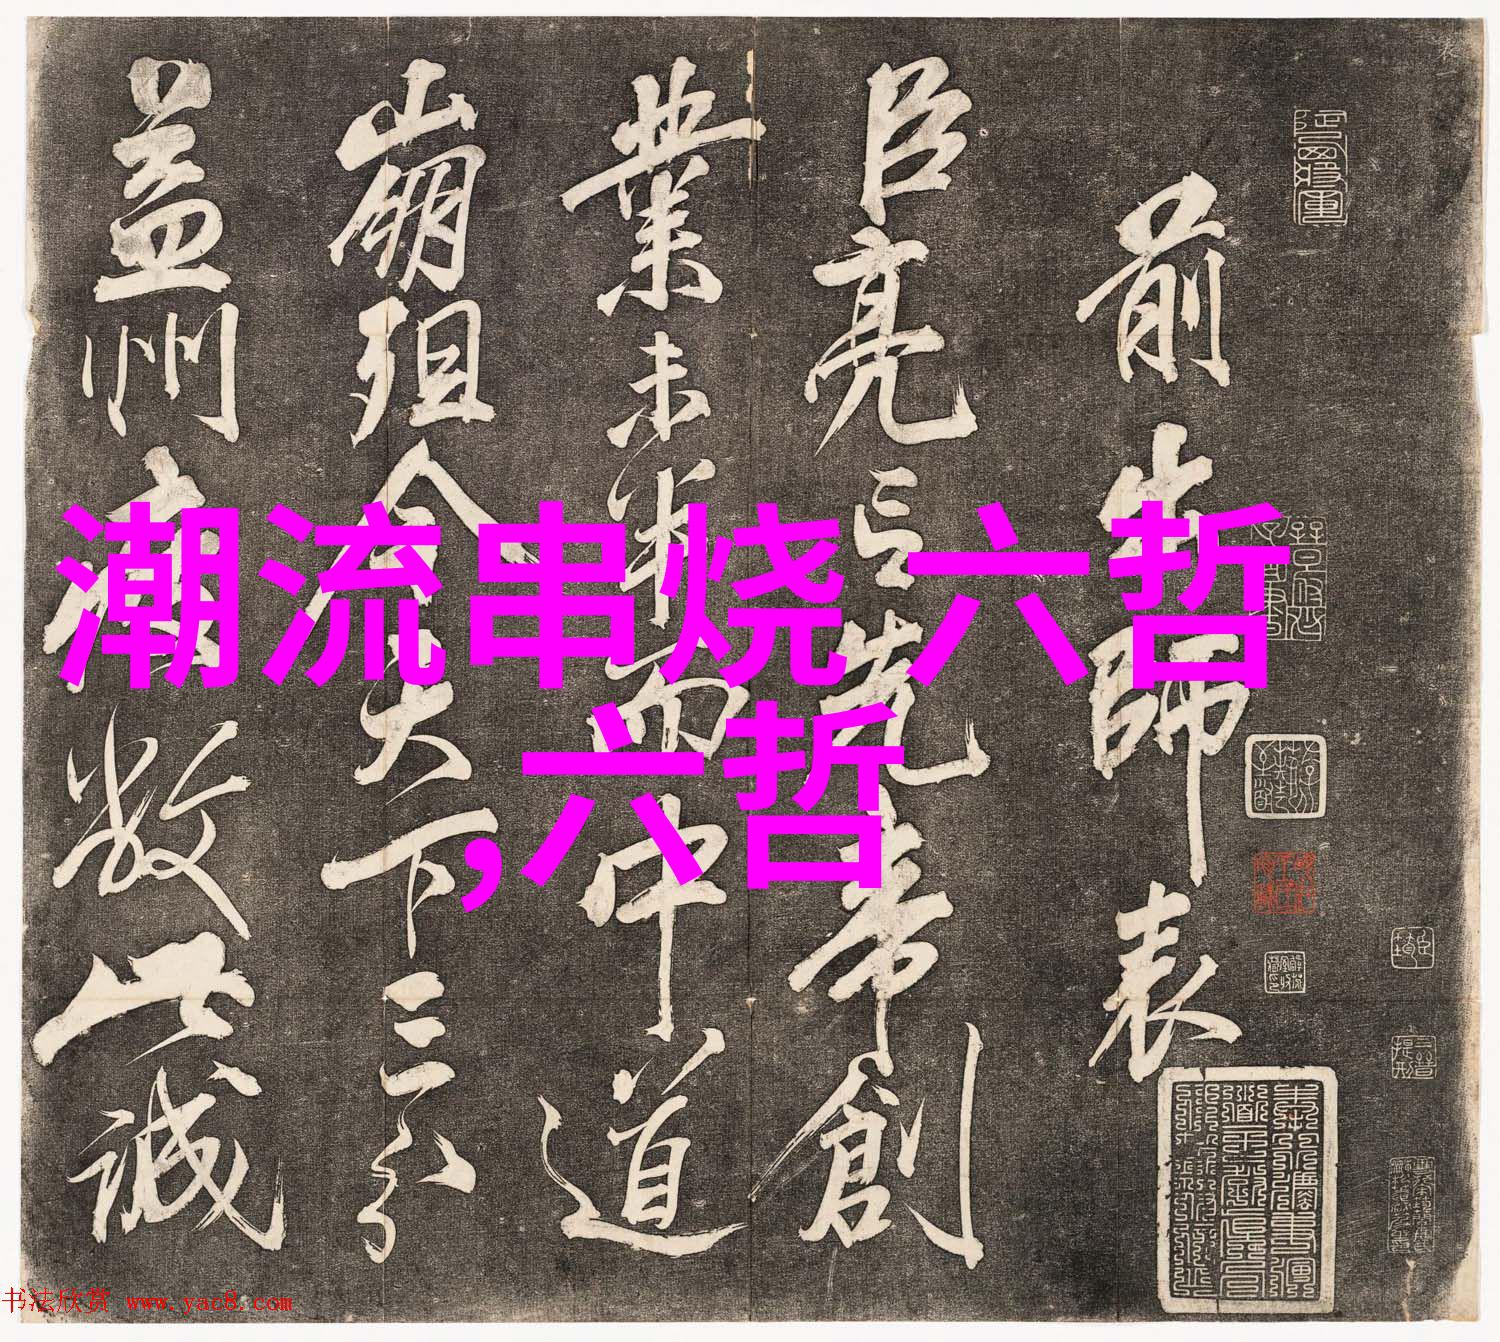 前出師表
臣亮言先帝創
業未半而中道
崩殂今天下三分
益州敝此誠
潮流串烧 六哲
,六哲
书法欣赏 www.yac8.com